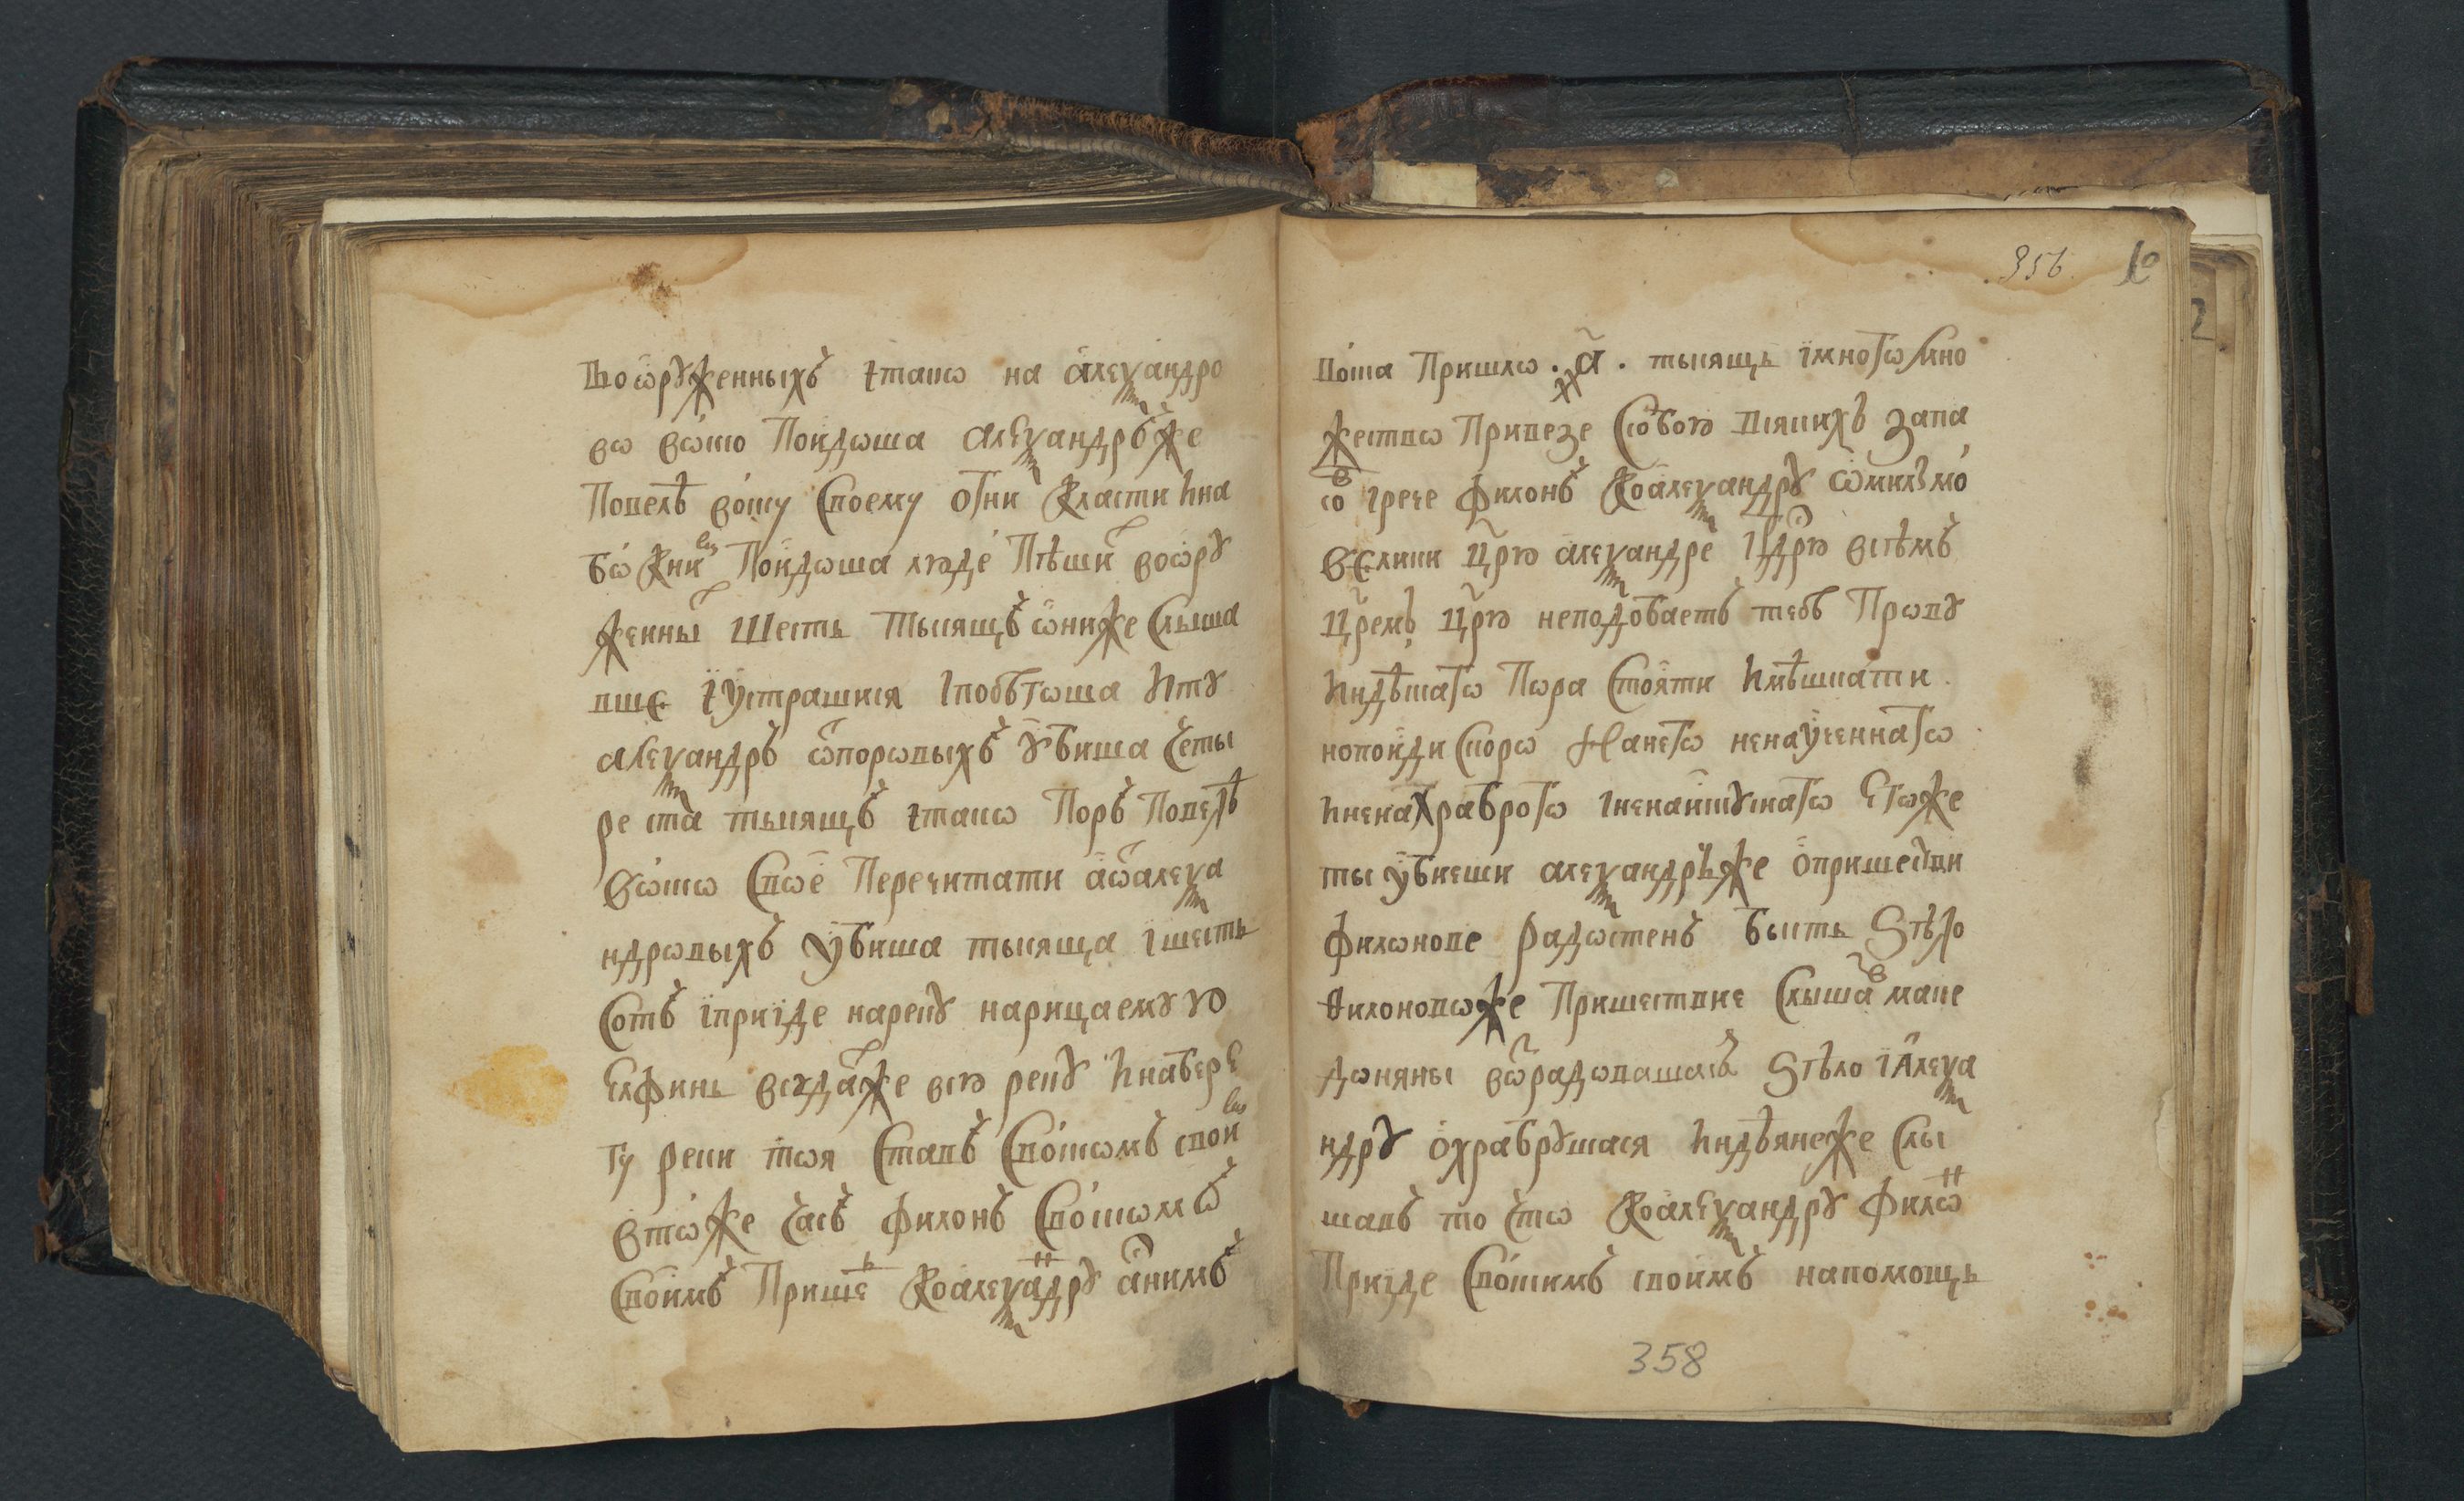 воѡрꙋженныхъ и тако на алеѯандро
во воско поидоша алеѯандръ же
повелѣ воску своему огни класти и на
бо книⷨ поидоша люде пѣши воѡрꙋ
женны шесть тысящъ ѡни же слыша
вше и устрашися и побѣгоша и тꙋ
алеѯандръ ѿ поровыхъ ꙋбиша четы
ре ста тысящъ и тако поръ повелѣ
воско свое перечитати а ѿ алеѯа
ндровыхъ убиша тысяща и шесть
сотъ и приїде на рекꙋ нарицаемꙋю
елфинь всꙋдаⷤ же всю рекꙋ и на бере
гу реки тоя ставъ с воскомъ своиⷨ
в то же часъ филонъ с воскомъ
своимъ прише къ алеѯаⷩдрꙋ а с нимъ
356
воска пришло .҂а҃. тысящь и много мно
жество привезе с собою всякихъ запа
соⷡ і рече филонъ ко алеѯандрꙋ ѡ милѣмо
велики цр҃ю алеѯандре гдⷭ҇рю всѣмъ
цр҃емъ цр҃ю неподобаетъ тебѣ проти
индѣскаго пора стояти и мѣшкати
но поиди скоро на него ненаученнаго
и ненахраброго і ненаискꙋснаго его же
ты убиеши алеѯандръ же ѡ пришестви
филонове радостенъ бысть ѕѣло
филоново же пришествие слышаⷡ маке
доняны воⷥрадовашася ѕѣло і алеѯа
ндрꙋ охрабрꙋшася индѣяне же слы
шавъ то что ко алеѯандрꙋ филоⷩ
приїде с воскимъ своимъ на помощь
358